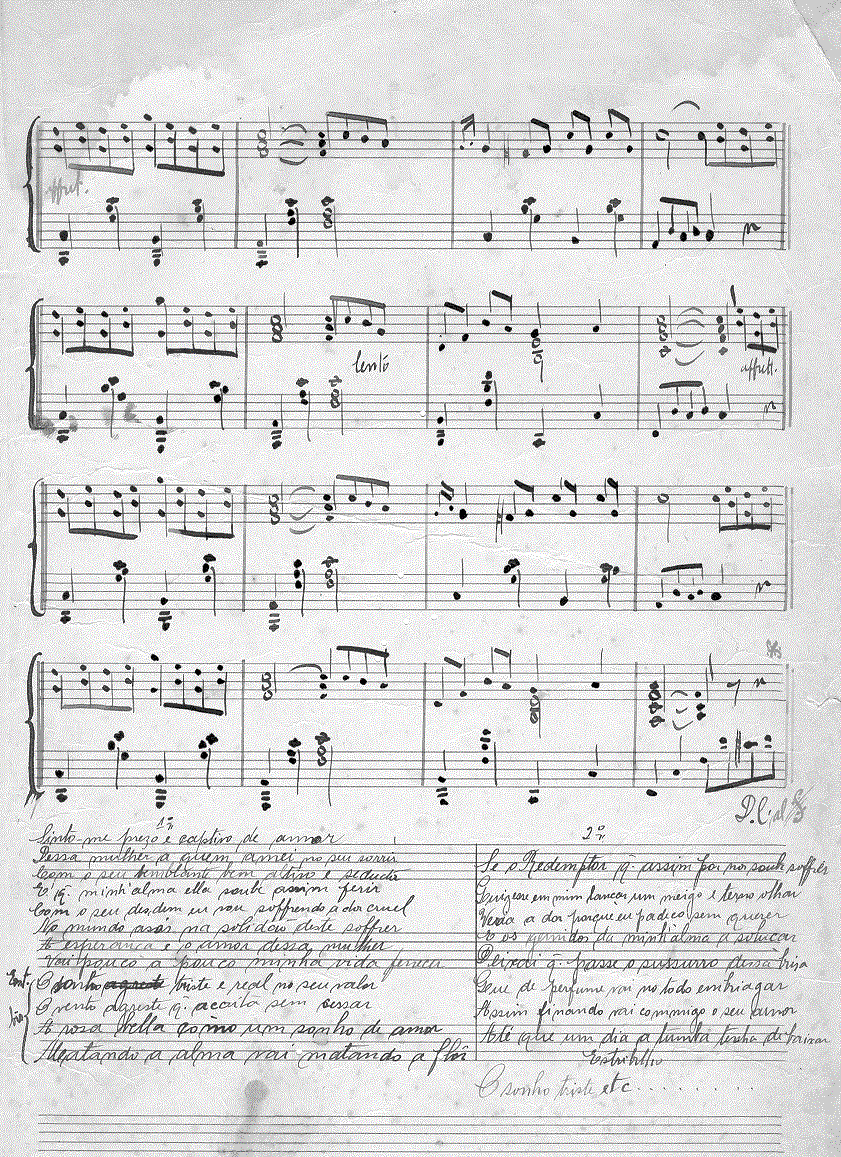 affret.
lento
affrett.
D.C. al
1ª
Sinto-me prezo e captivo de amor
Dessa mulher a quem amei no seu sorrir
Com o seu semblante bem altivo e seductor
E' q. minh'alma ella soube assim ferir
Com o seu desdem eu vou soffrendo a dor cruel
No mundo a sós na solidão deste soffrer
A esperança e o amor dessa mulher
Vai pouco a pouco minha vida
O sonho agreste triste e real no seu valor
O vento agreste q. açoita sem cessar
A rosa bella como um sonho de amor
Matando a alma vai matando a flôr
2ª
Se o Redemptor q. assim foi no soffrer
em mim lançar um meigo e terno olhar
a dor porque eu padeço sem querer
E os gemidos da minh'alma a soluçar
Deixai q. passe o sussurro dessa brisa
Que de perfume vai no todo embriagar
Assim finando vai commigo o seu amor
Até que um dia a tumba tenha de baixar
Estribilho
O sonho triste etc........